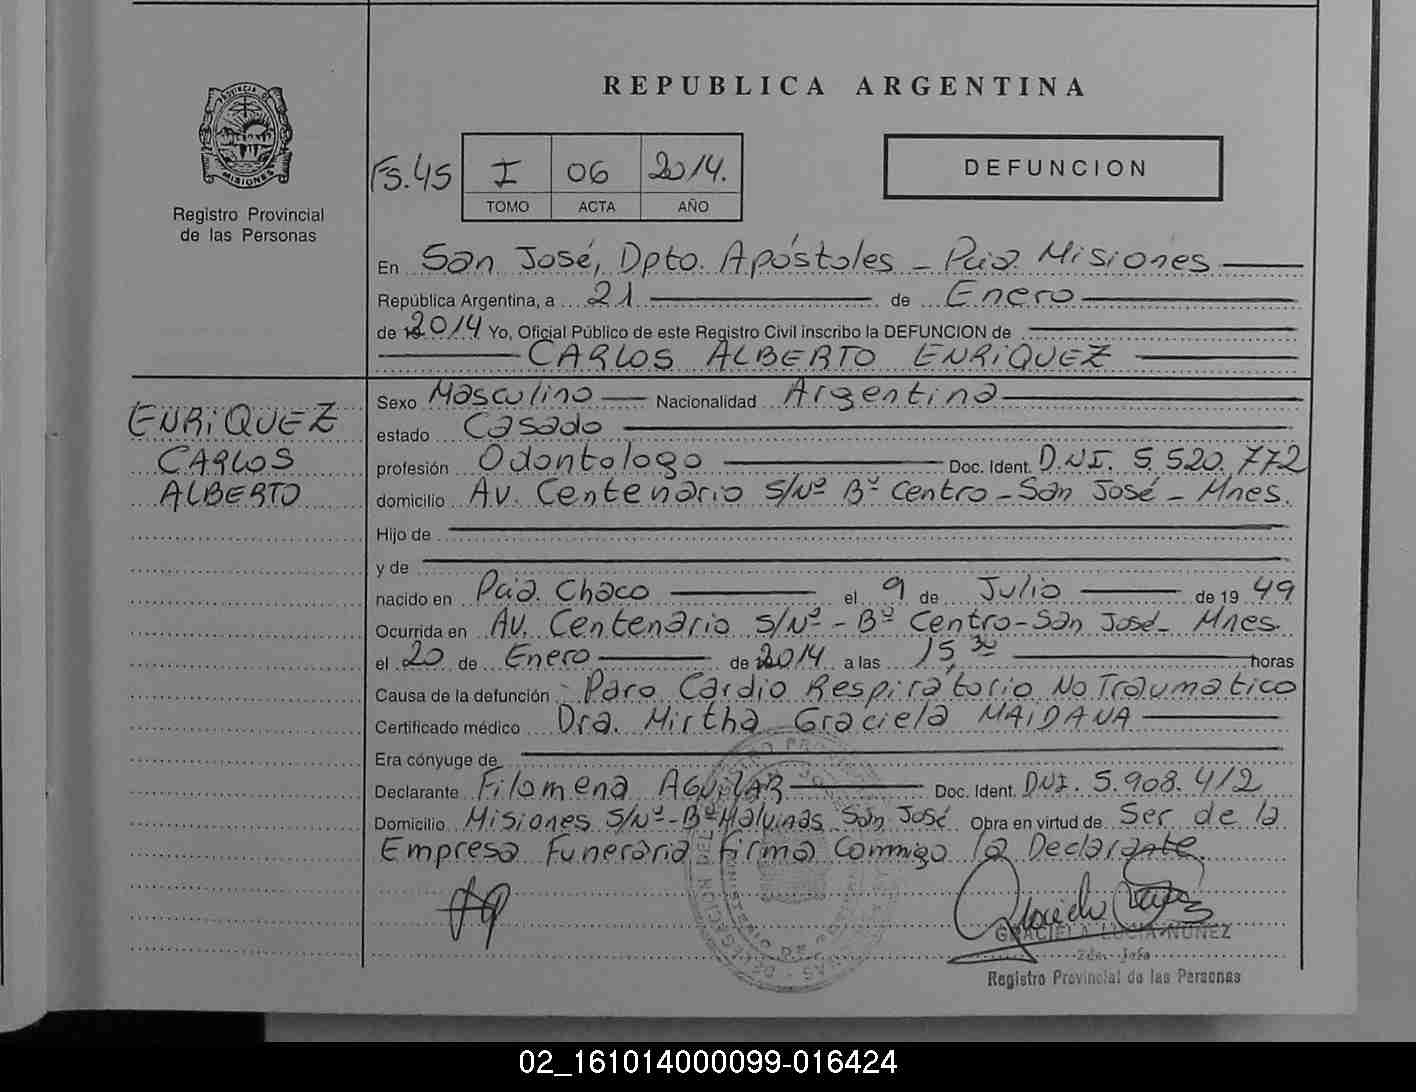 REPUBLICA ARGENTINA
PROVINCIA DE
MISIONES
Registro Provincial
de las Personas
Fs.45
I 06 2014.
TOMO ACTA AÑO
DEFUNCION
En San José, Dpto. Apóstoles - Pcia. Misiones
República Argentina, a 21 de Enero
de 2014 Yo, Oficial Público de este Registro Civil inscribo la DEFUNCION de
CARLOS ALBERTO ENRIQUEZ
ENRIQUEZ
CARLOS
ALBERTO
Sexo Masculino Nacionalidad Argentina
estado Casado
profesión Odontologo Doc. Ident. D.N.I. 5.520.772
domicilio Av. Centenario S/Nº Bº Centro - San José - Mnes.
Hijo de
y de
nacido en Pcia. Chaco el 9 de Julio de 19 49
Ocurrida en Av. Centenario S/Nº - Bº Centro - San José - Mnes.
el 20 de Enero de 2014 a las 15,30 horas
Causa de la defunción Paro Cardio Respiratorio No Traumatico
Certificado médico Dra. Mirtha Graciela MAIDANA
Era cónyuge de
Declarante Filomena AGUILAR Doc. Ident. DNI. 5.908.412
Domicilio Misiones S/Nº - Bº Malvinas San José Obra en virtud de Ser de la
Empresa Funeraria Firma Conmigo la Declarante.
GRACIELA LUCIA NUÑEZ
2da. Jefa
Registro Provincial de las Personas
02_161014000099-016424